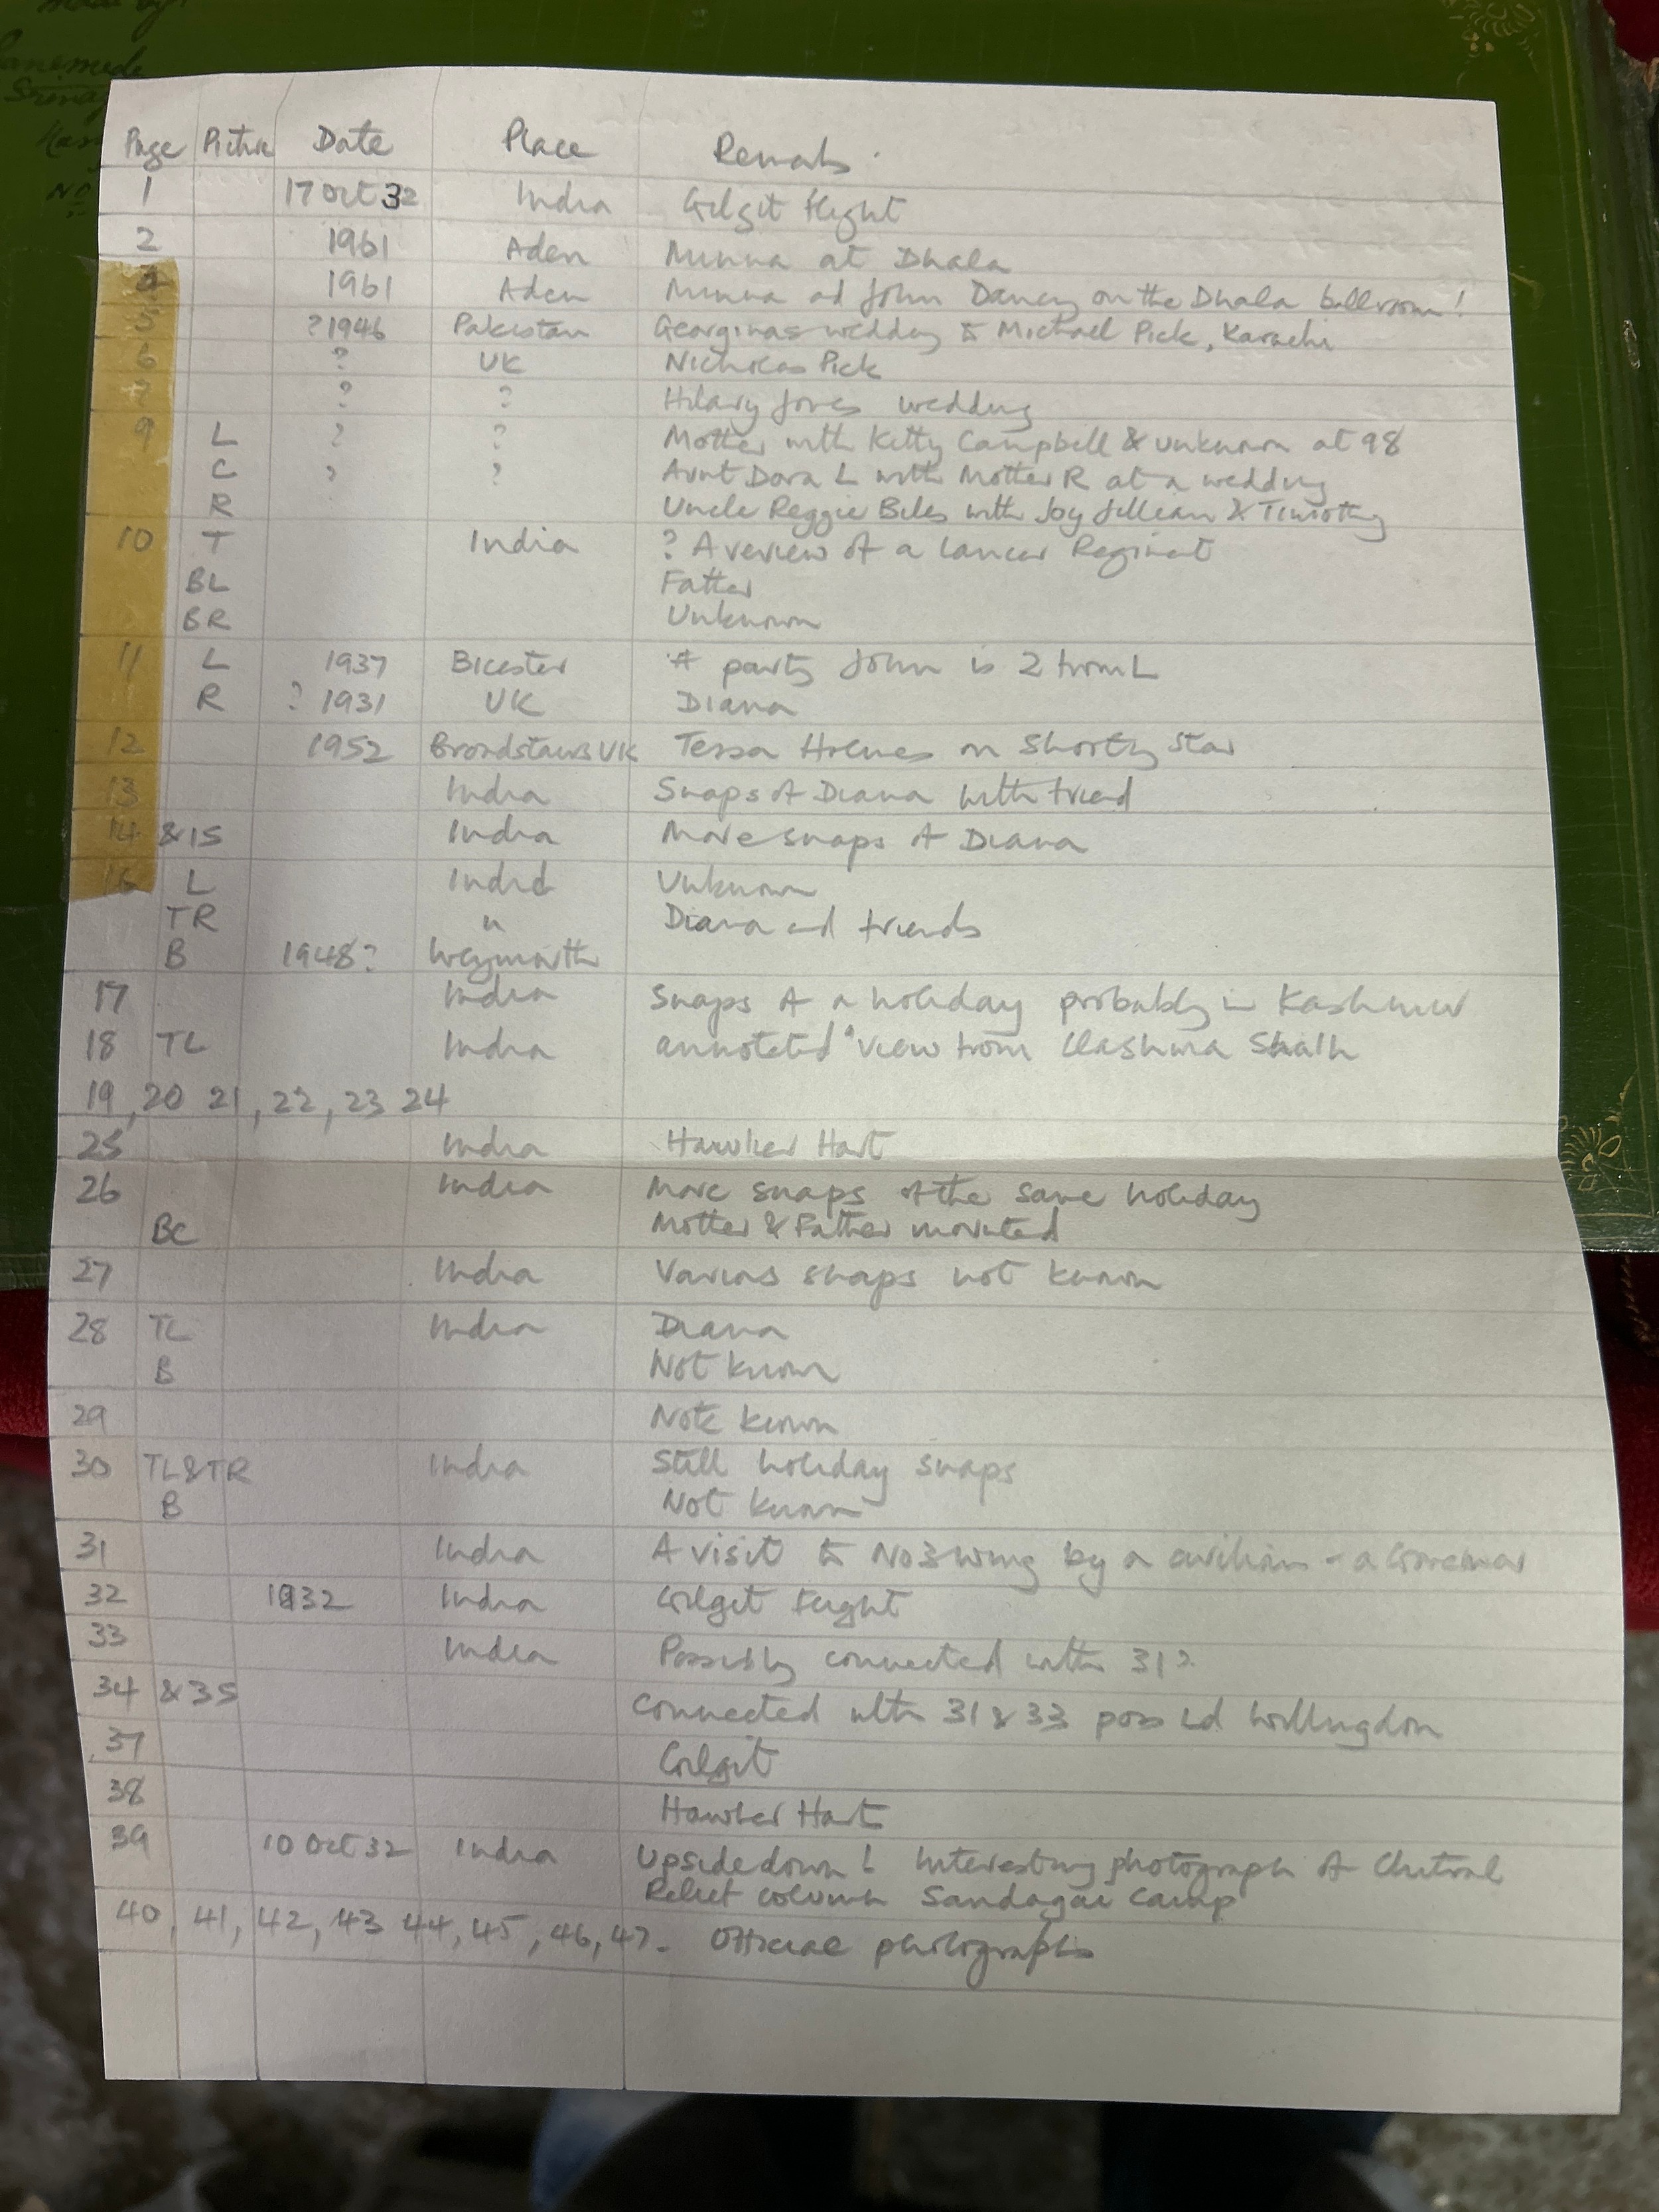 Made by
Ganemede
Srinag
Page Picture Date Place Remarks
1 17 Oct 32 India Gilgit flight
2 1961 Aden Minna at Dhala
4 1961 Aden Minna and John Dancy on the Dhala ballroom!
5 ?1946 Pakistan Georginas wedding to Michael Pick, Karachi
6 ? UK Nicholas Pick
7 ? ? Hilary Jones wedding
9 L ? ? Mother with Kitty Campbell & unknown at 98
C ? ? Aunt Dora L with Mother R at a wedding
R Uncle Reggie Biles with Joy Jillian & Timothy
10 T India ? A review of a Lancer Regiment
BL Father
BR Unknown
11 L 1937 Bicester party John is 2 from L
R ? 1931 UK Diana
12 1952 Broadstairs UK Tessa Holmes on Shorty Star
13 India Snaps of Diana with friend
14 & 15 India More snaps of Diana
16 L India Unknown
TR " Diana and friends
B 1948? Weymouth
17 India Snaps of a holiday probably in Kashmir
18 TL India annotated "View from Chashma Shahi
19, 20 21, 22, 23 24
25 India Hawker Hart
26 India More snaps of the same holiday
BC Mother & Father mounted
27 India Various snaps not known
28 TL India Diana
B Not known
29 Note known
30 TL & TR India Still holiday snaps
B Not known
31 India A visit to No 3 wing by a civilian - a Governor
32 1932 India Gilgit flight
33 India Possibly connected with 31?
34 & 35 Connected with 31 & 33 poss Ld Willingdon
37 Gilgit
38 Hawker Hart
39 10 Oct 32 India Upside down! Interesting photograph of Chitral
Relief column Camp
40, 41, 42, 43 44, 45, 46, 47. Official photographs